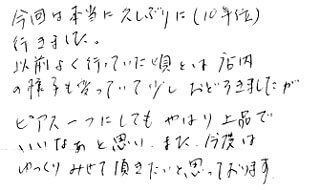 今回は本当に久しぶりに(10年位)
行きました。
以前よく行っていた頃とは店内
の様子も変っていて少しおどろきましたが
ピアス一つにしてもやはり上品で
いいなぁと思い、また、今後は
ゆっくりみせて頂きたいと思っております